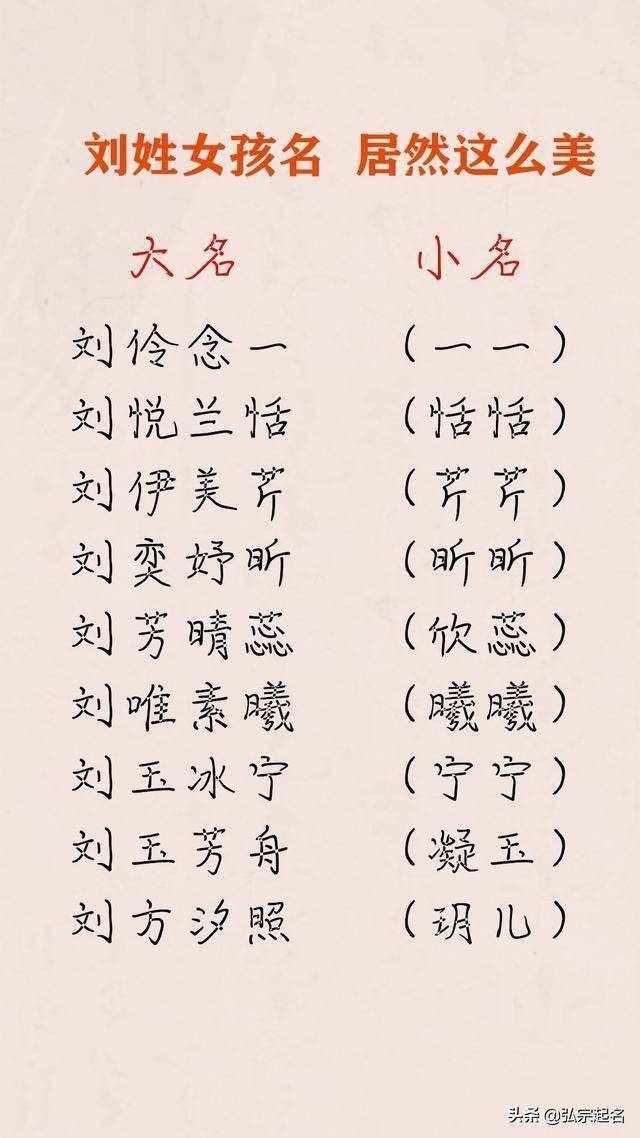 刘姓女孩名 居然这么美
大名 小名
刘伶念一 (一一)
刘悦兰恬 (恬恬)
刘伊美芹 (芹芹)
刘奕妤昕 (昕昕)
刘芳晴蕊 (欣蕊)
刘唯素曦 (曦曦)
刘玉冰宁 (宁宁)
刘玉芳舟 (凝玉)
刘方汐照 (玥儿)
头条 @弘宗起名